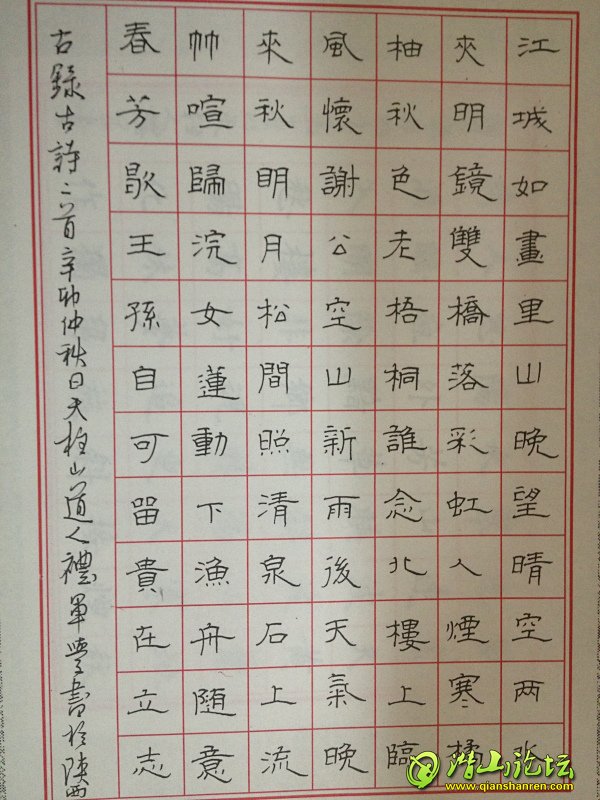 江城如畫里山晚望晴空两水
夾明鏡雙橋落彩虹人煙寒橘
柚秋色老梧桐誰念北樓上臨
風懷謝公空山新雨後天氣晚
來秋明月松間照清泉石上流
帅喧歸浣女蓮動下漁舟随意
春芳歇王孫自可留貴在立志
古錄古詩二首辛卯仲秋日天柱山道人禮軍學書於陕西
潜山论坛
www.qianshanren.com